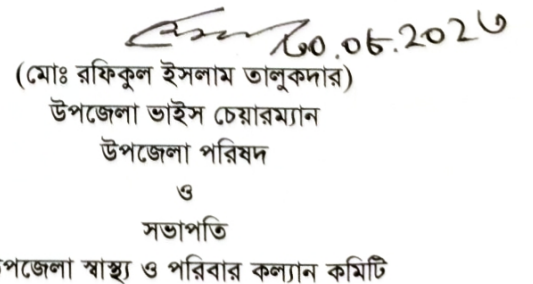 ৩০.০৫.২০২৩
(মোঃ রফিকুল ইসলাম তালুকদার)
উপজেলা ভাইস চেয়ারম্যান
উপজেলা পরিষদ
ও
সভাপতি
পজেলা স্বাস্থ্য ও পরিবার কল্যান কমিটি